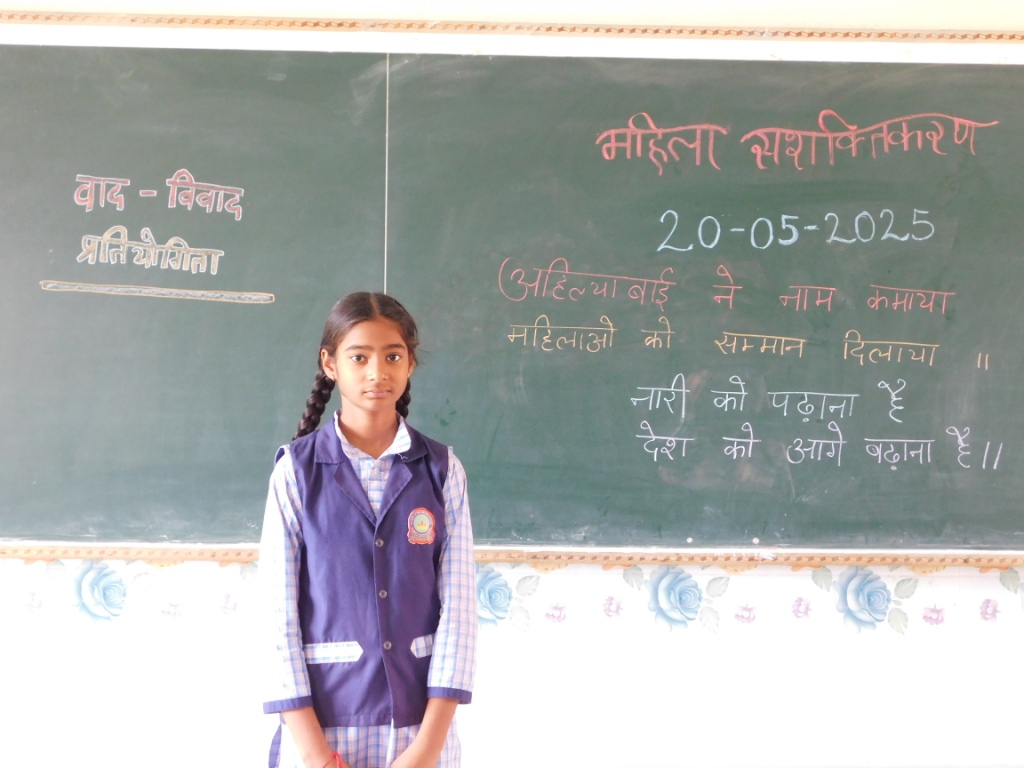 वाद - विवाद
प्रतियोगिता
महिला सशक्तिकरण
20-05-2025
अहिल्याबाई ने नाम कमाया
महिलाओ को सम्मान दिलाया ॥
नारी को पढ़ाना है
देश को आगे बढ़ाना है॥